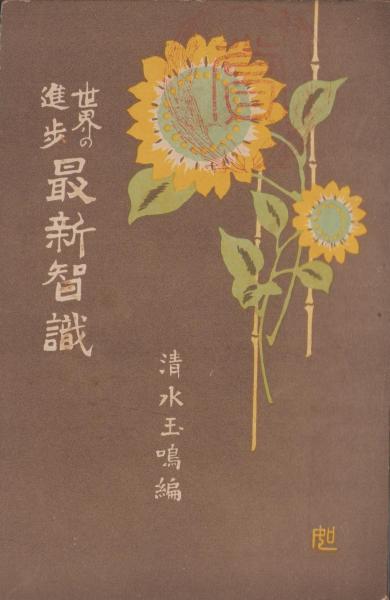 世界の
進歩
最新智識
清水玉鳴編